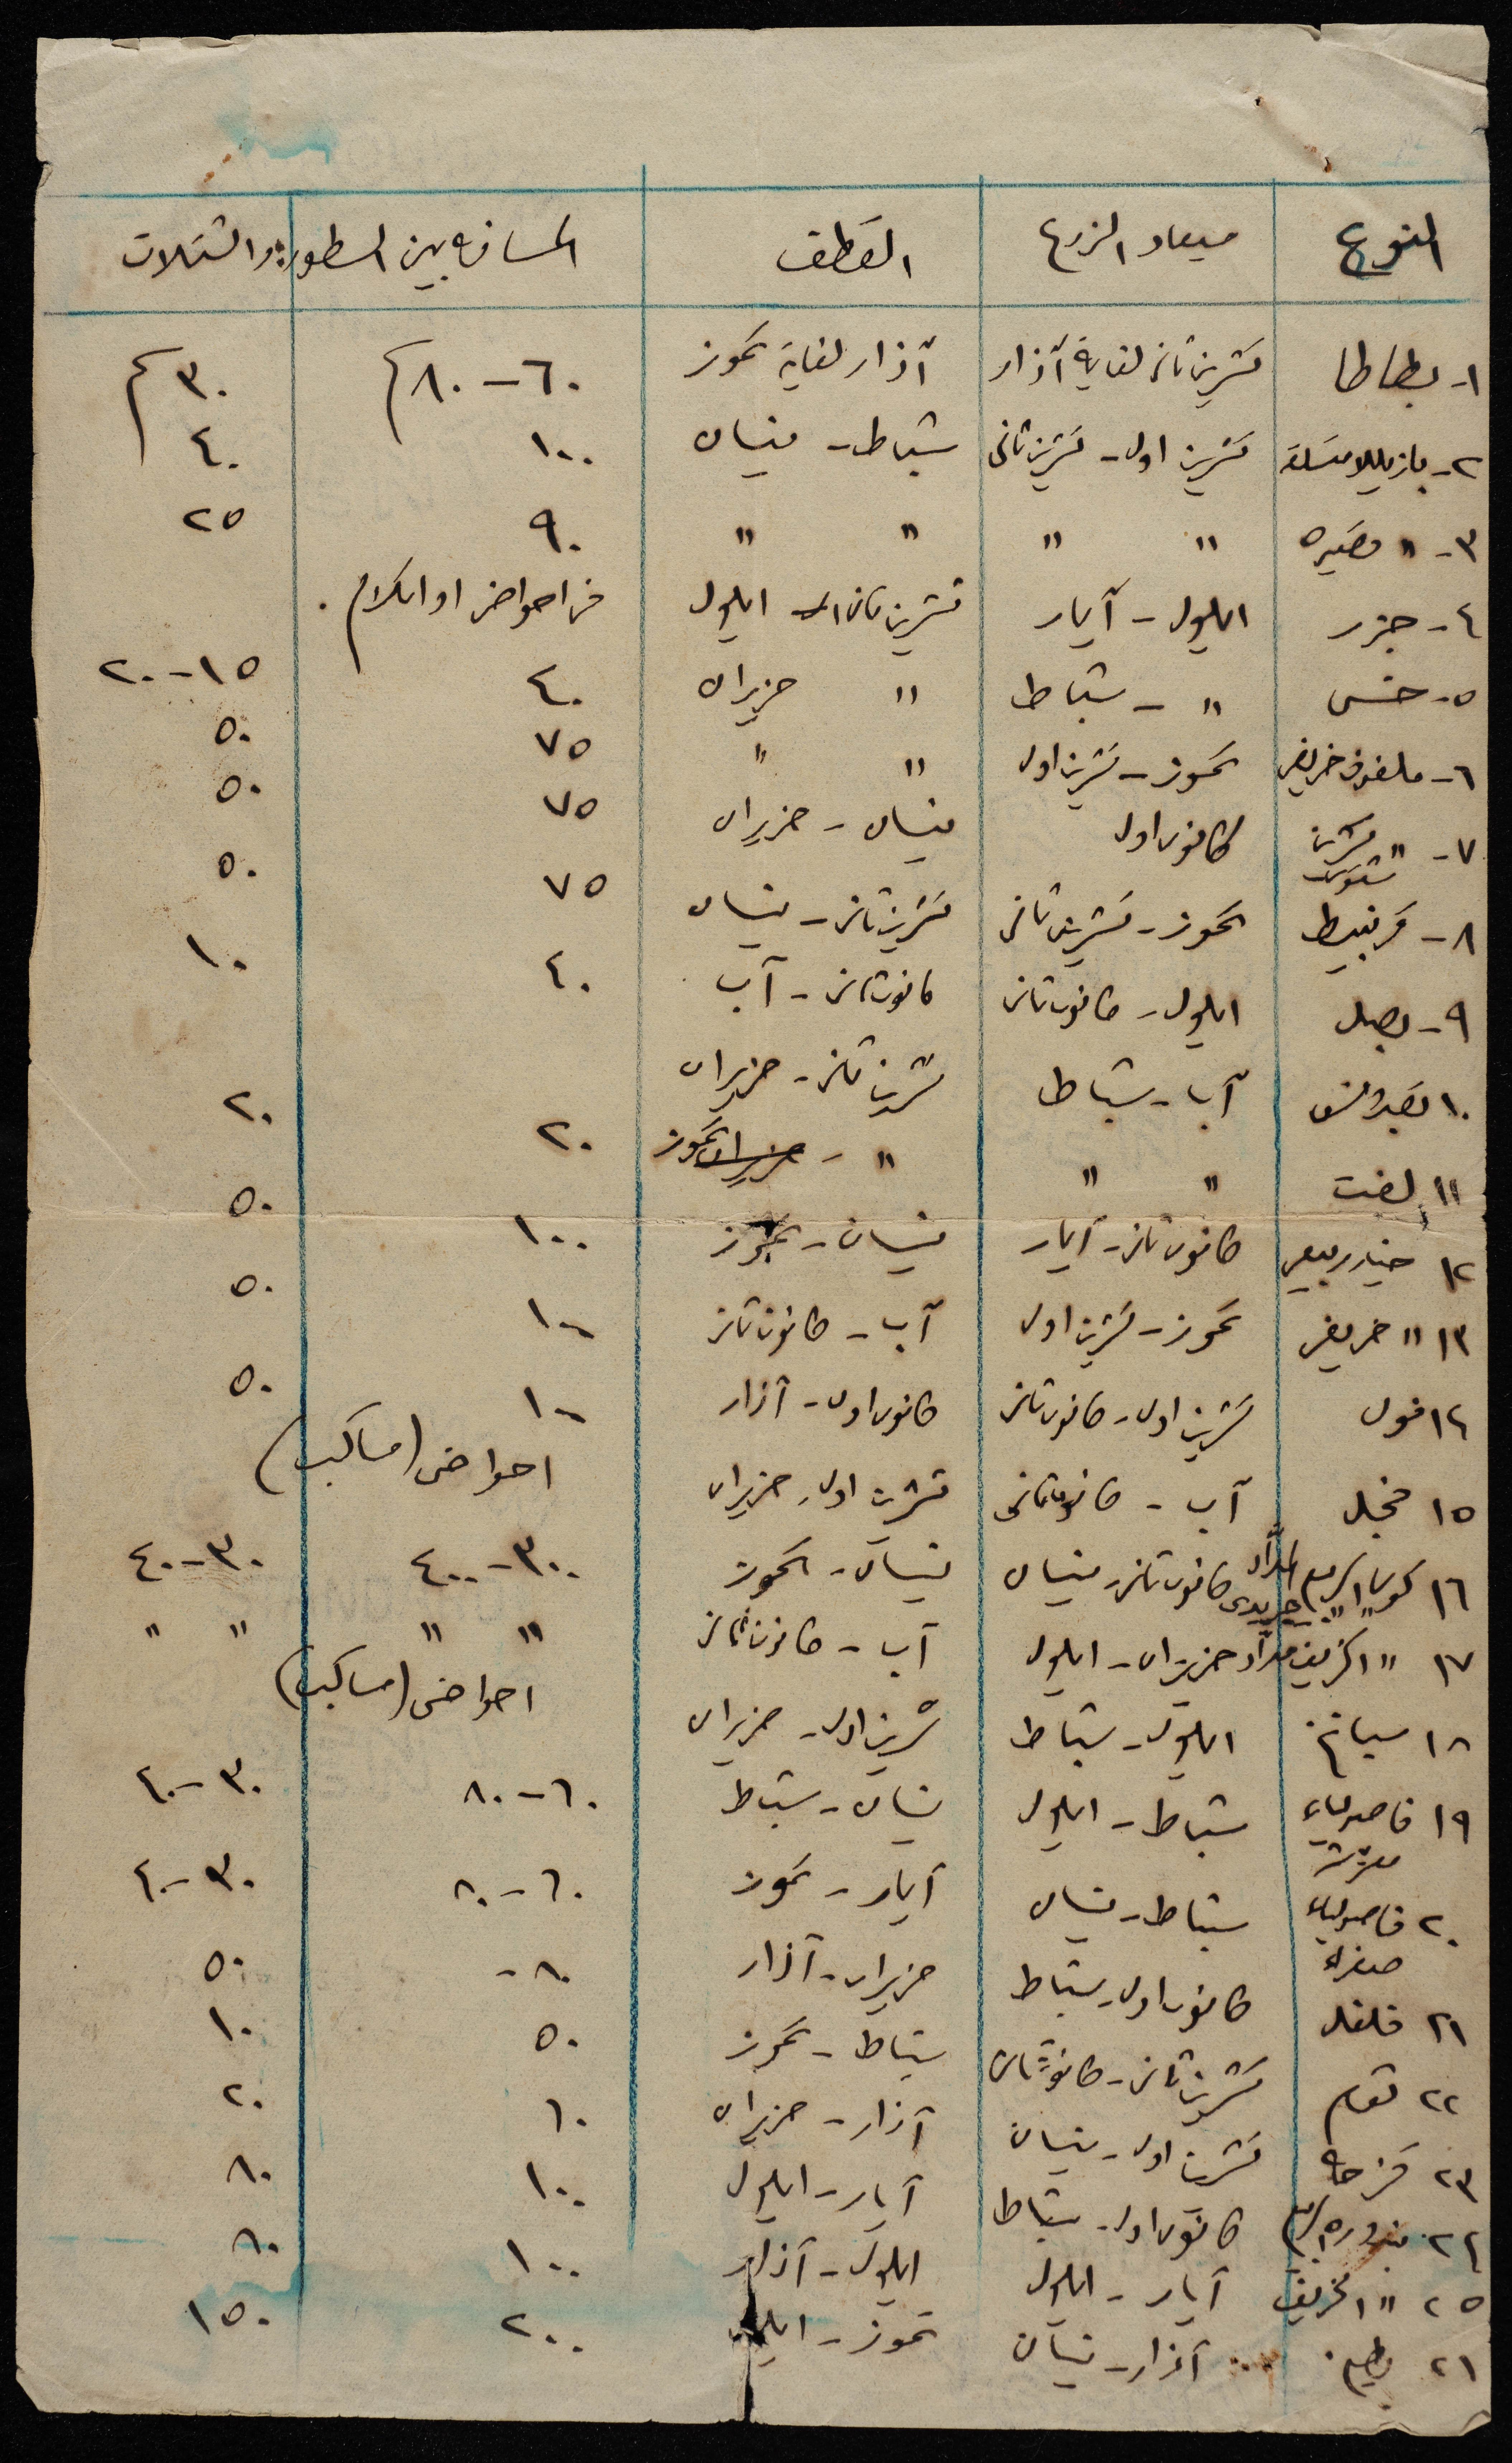 النوع ميعاد الزرع القطف المسافه بين السطور والشتلات
١- بطاطا تشرين ثاني لغاية آذار آذار لغاية تموز ٦٠-٨٠ سم ٣٠ سم
٢- بازيللا متسلقه تشرين اول - تشرين ثاني شباط - نيسان ١٠٠ ٤٠
٣- " قصيره " " " " ٩٠ ٢٥
٤- جزر ايلول - آيار تشرين ثاني الى ايلول في احواض او اتلام .
٥- خس " - شباط " حزيران ٤٠ ١٥-٢٠
٦- ملفوف خريفي تموز - تشرين اول " " ٧٥ ٥٠
٧- " شتوي كانون اول نيسان - حزيران ٧٥ ٥٠
٨- قرنبيط تموز - تشرين ثاني تشرين ثاني - نيسان ٧٥ ٥٠
٩- بصل ايلول - كانون ثاني كانون ثاني - آب ٤٠ ١٠
١٠ بقدونس آب - شباط تشرين ثاني - حزيران
١١ لفت " " " - حزيران تموز ٢٠ ٢٠
١٢ خيار ربيعي كانون ثاني - آيار نيسان - تموز ١٠٠ ٥٠
١٣ " خريفي تموز - تشرين اول آب - كانون ثاني ١٠٠ ٥٠
١٤ فول تشرين اول - كانون ثاني كانون اول - آذار ١٠٠ ٥٠
١٥ فجل آب - كانون ثاني تشرين اول - حزيران احواض (مساكب)
١٦ كوسا كانون ثاني - نيسان نيسان - تموز ٣٠٠-٤٠٠ ٣٠-٤٠
١٧ " الخريف مداد حزيران - ايلول آب - كانون ثاني " " " "
١٨ سبانخ ايلول - شباط تشرين اول - حزيران احواض (مساكب)
١٩ فاصولياء شباط - ايلول نيسان - شباط ٦٠-٨٠ ٣٠-٤٠
٢٠ فاصولياء صفراء شباط - نيسان آيار - تموز ٦٠-٨٠ ٣٠-٤٠
٢١ فلفل كانون اول - شباط حزيران - آذار ٨٠- ٥٠
٢٢ ثوم تشرين ثاني - كانون ثاني شباط - تموز ٥٠ ١٠
٢٣ قزحه تشرين اول - نيسان آذار - حزيران ٦٠ ٢٠
٢٤ بندوره كانون اول - شباط آيار - ايلول ١٠٠ ٨٠
٢٥ " الخريف آيار - ايلول ايلول - آذار ١٠٠ ٨٠
٢٦ بطيخ آذار - نيسان تموز - ايلول ٢٠٠ ١٥٠